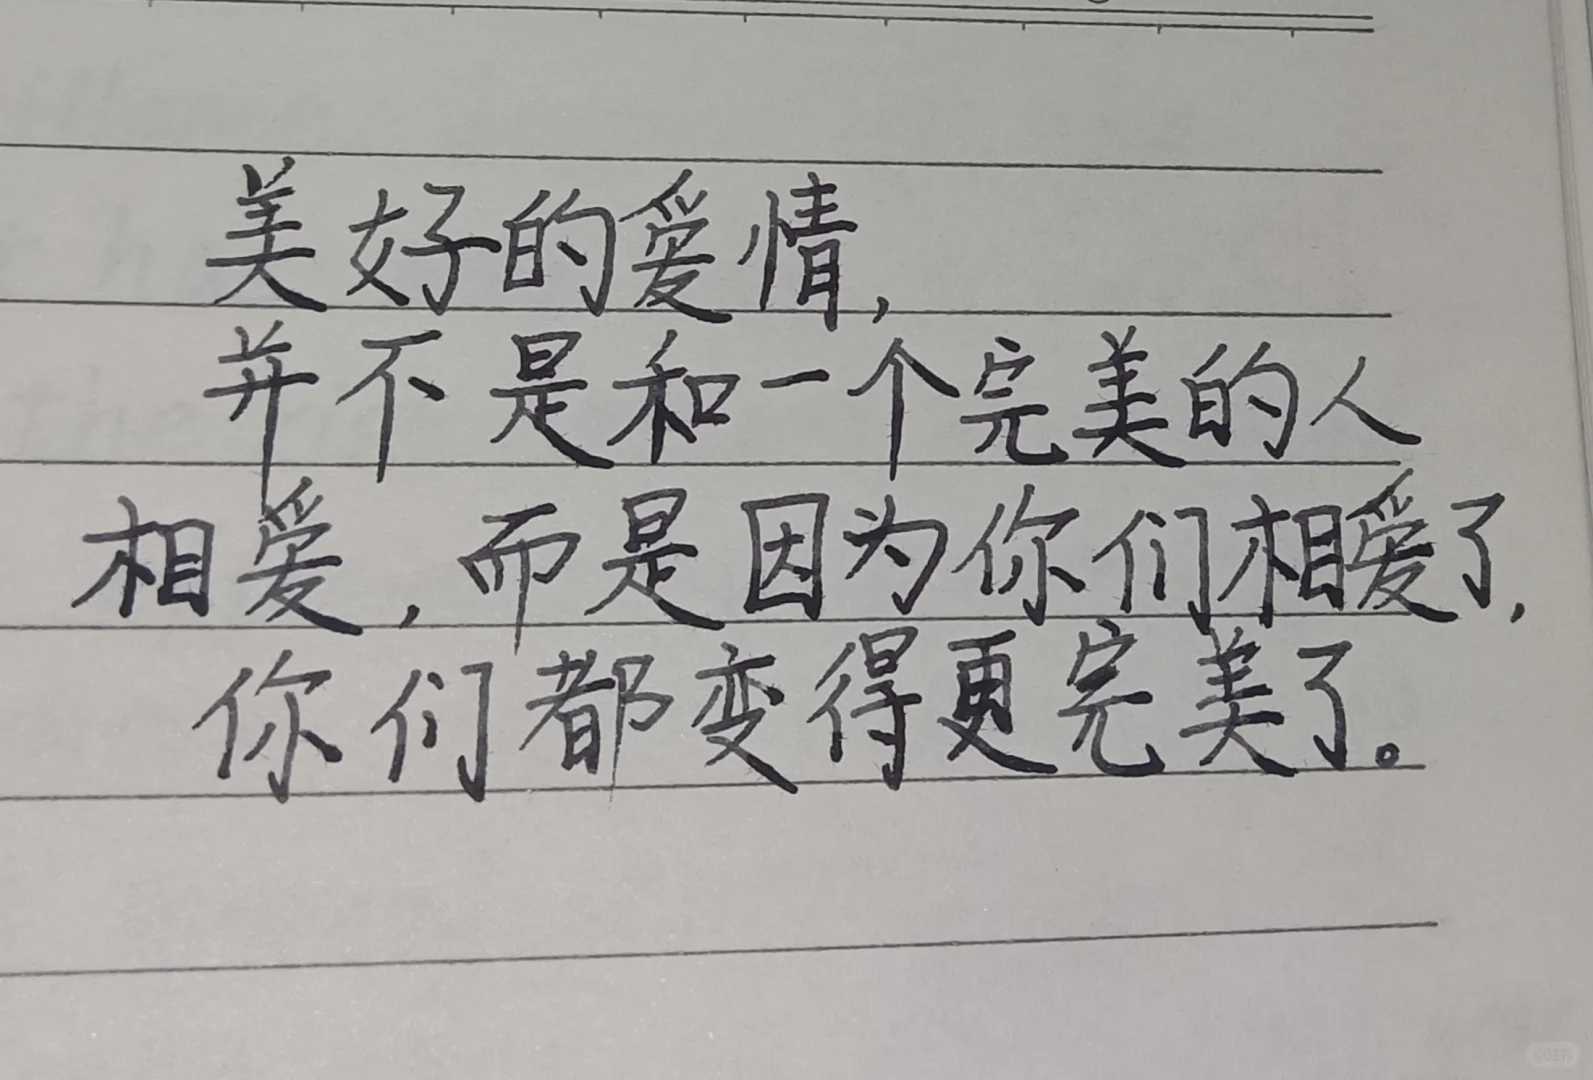 美好的爱情，
并不是和一个完美的人
相爱，而是因为你们相爱了，
你们都变得更完美了。
小红书